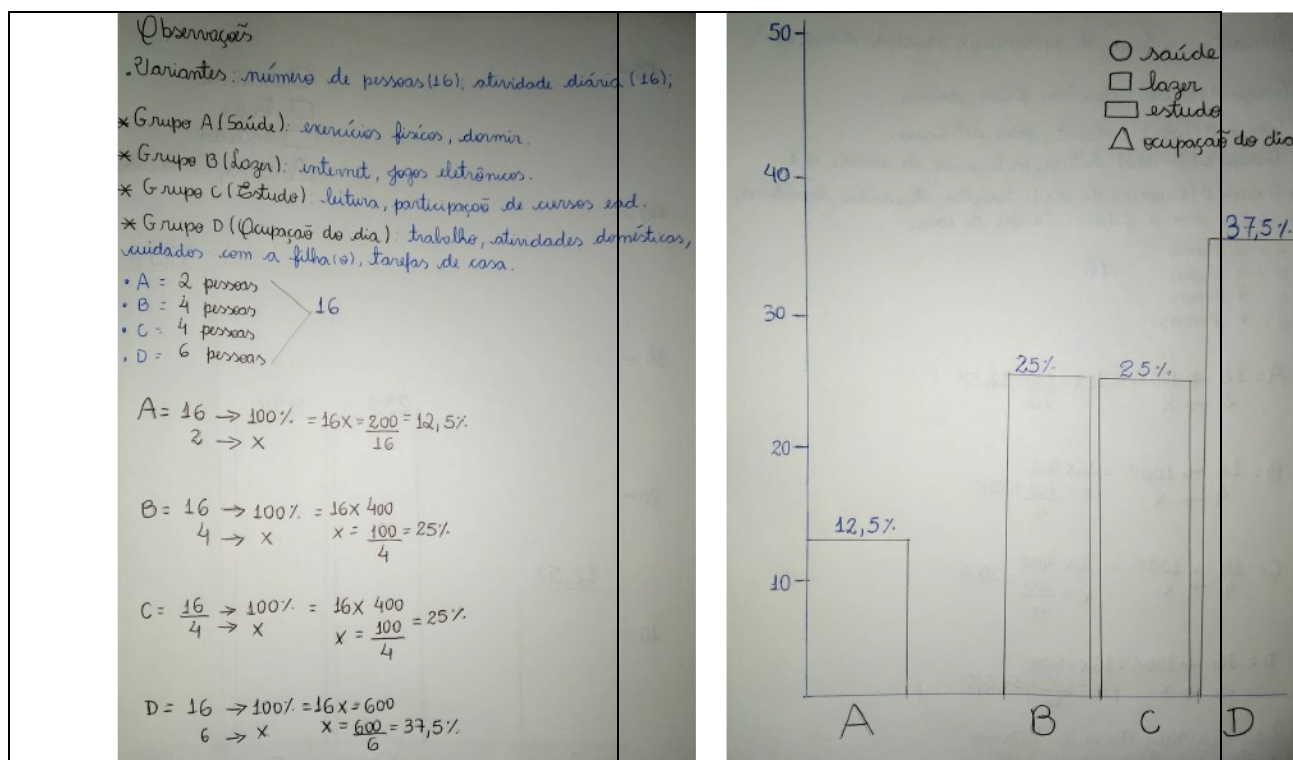 Observações
. Variantes: número de pessoas (16); atividade diária (16);
* Grupo A (Saúde): exercícios físicos, dormir.
* Grupo B (Lazer): internet, jogos eletrônicos.
* Grupo C (Estudo): leitura, participação de cursos ead.
* Grupo D (Ocupação do dia): trabalho, atividades domésticas,
cuidados com a filha(o), tarefas de casa.
• A = 2 pessoas
• B = 4 pessoas
• C = 4 pessoas
• D = 6 pessoas
16
A = 16 → 100% = 16x = 200/16 = 12,5%
2 → x
B = 16 → 100% = 16x 400
4 → x x = 100/4 = 25%
C = 16/4 → 100% = 16x 400
→ x x = 100/4 = 25%
D = 16 → 100% = 16x = 600
6 → x x = 600/6 = 37,5%
50
40
30
20
10
○ saúde
□ lazer
▭ estudo
△ ocupação do dia
12,5%
25%
25%
37,5%
A B C D